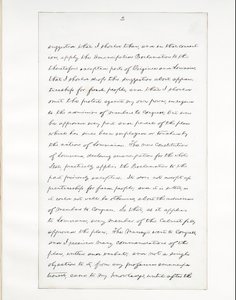 2
suggested that I should then, and in that connect-
ion, apply the Emancipation Proclamation to the
theretofore excepted parts of Virginia and Louisiana;
that I should drop the suggestion about appren-
ticeship for freed-people, and that I should
omit the protest against my own power, in regard
to the admission of members to Congress; but even
he approved every part and parcel of the plan
which has since been employed or touched by
the action of Louisiana. The new constitution
of Louisiana, declaring emancipation for the whole
State, practically applies the Proclamation to the
part previously excepted. It does not adopt ap-
prenticeship for freed-people; and it is silent, as
it could not well be otherwise, about the admission
of members to Congress. So that, as it applies
to Louisiana, every member of the Cabinet fully
approved the plan. The Message went to Congress,
and I received many commendations of the
plan, written and verbal; and not a single
objection to it, from any professed emancipa-
tionist, came to my knowledge, until after the